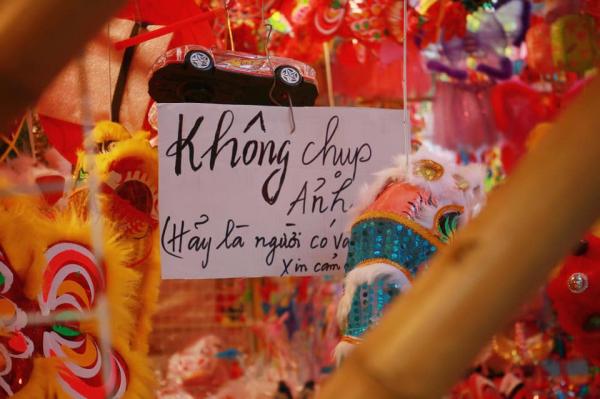 Không chụp
Ảnh
(Hẩy là người có vă
Xin cảm